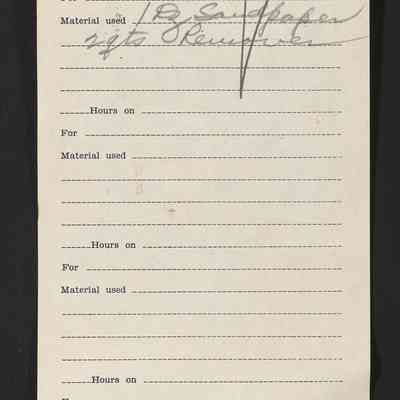 Material used 1 Dz Sandpaper
2 qts Remover
Hours on
For
Material used
Hours on
For
Material used
Hours on